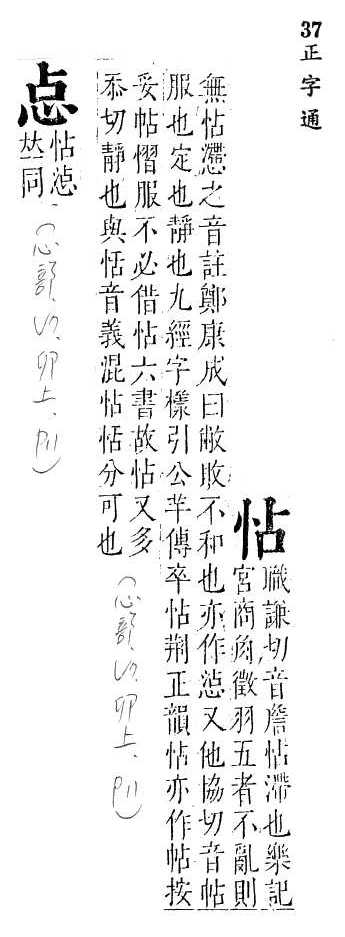 37 正字通
怗
職謙切音詹怗滯也樂記
宮商角徵羽五者不亂則
無怗懘之音註鄭康成曰敝敗不和也亦作惉又他協切音帖
服也定也靜也九經字樣引公羊傳卒怗荆正韻怗亦作帖按
妥帖慴服不必借怗六書故怗又多
忝切靜也與恬音義混怗恬分可也
(心部、卯上、P11)
㤐
怗惉
𠀤同
(心部、卯上、P11)